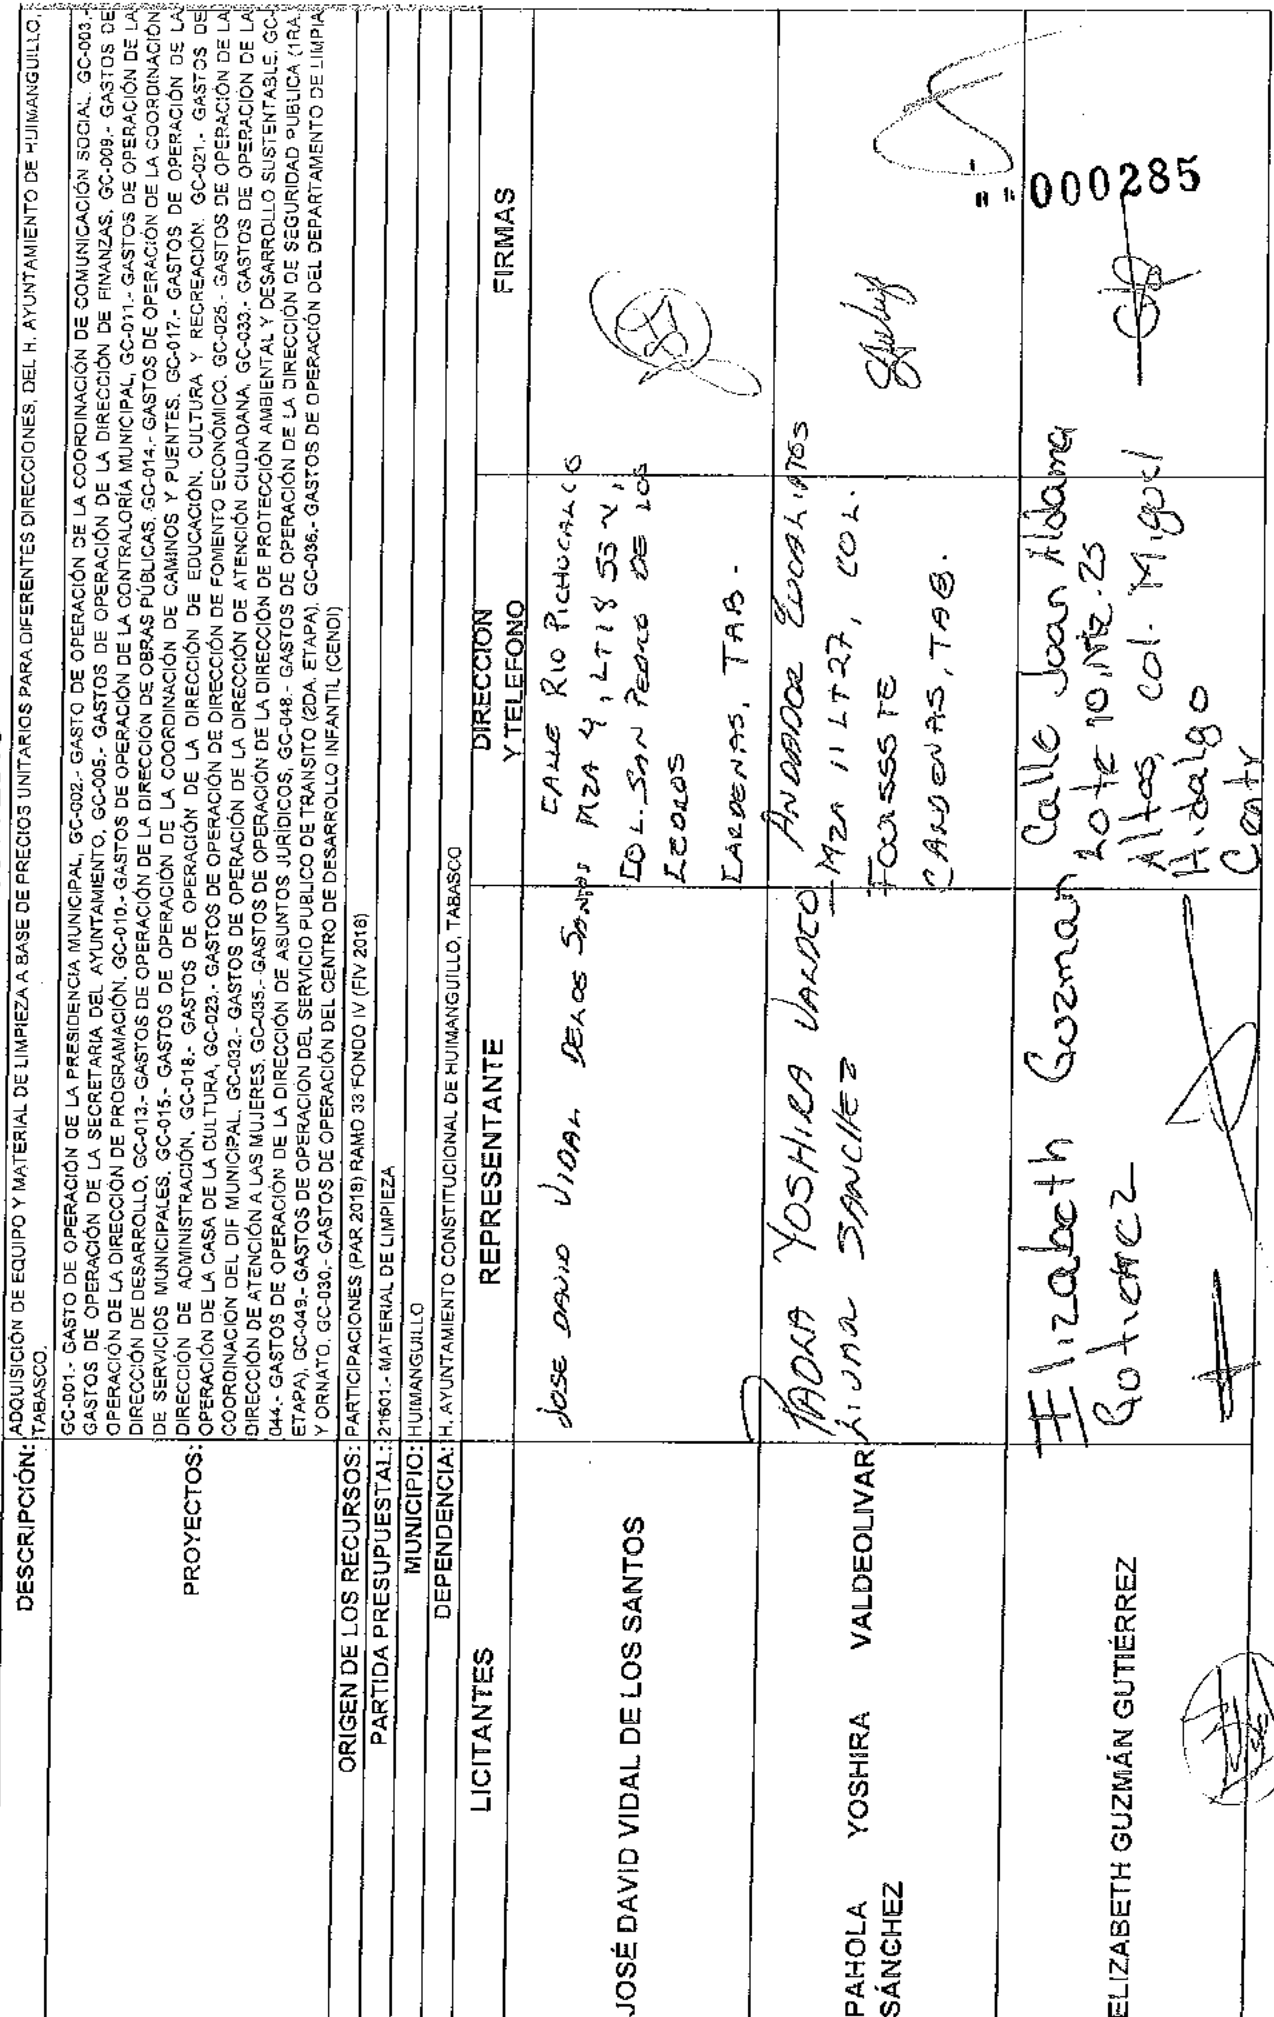 DESCRIPCIÓN: ADQUISICIÓN DE EQUIPO Y MATERIAL DE LIMPIEZA A BASE DE PRECIOS UNITARIOS PARA DIFERENTES DIRECCIONES, DEL H. AYUNTAMIENTO DE HUIMANGUILLO,
TABASCO.
PROYECTOS: GC-001.- GASTO DE OPERACIÓN DE LA PRESIDENCIA MUNICIPAL, GC-002.- GASTO DE OPERACIÓN DE LA COORDINACIÓN DE COMUNICACIÓN SOCIAL, GC-003.-
GASTOS DE OPERACIÓN DE LA SECRETARIA DEL AYUNTAMIENTO, GC-005.- GASTOS DE OPERACIÓN DE LA DIRECCIÓN DE FINANZAS, GC-009.- GASTOS DE
OPERACIÓN DE LA DIRECCIÓN DE PROGRAMACIÓN, GC-010.- GASTOS DE OPERACIÓN DE LA CONTRALORÍA MUNICIPAL, GC-011.- GASTOS DE OPERACIÓN DE LA
DIRECCIÓN DE DESARROLLO, GC-013.- GASTOS DE OPERACIÓN DE LA DIRECCIÓN DE OBRAS PÚBLICAS, GC-014.- GASTOS DE OPERACIÓN DE LA COORDINACIÓN
DE SERVICIOS MUNICIPALES, GC-015.- GASTOS DE OPERACIÓN DE LA COORDINACIÓN DE CAMINOS Y PUENTES, GC-017.- GASTOS DE OPERACIÓN DE LA
DIRECCIÓN DE ADMINISTRACIÓN, GC-018.- GASTOS DE OPERACIÓN DE LA DIRECCIÓN DE EDUCACIÓN, CULTURA Y RECREACIÓN, GC-021.- GASTOS DE
OPERACIÓN DE LA CASA DE LA CULTURA, GC-023.- GASTOS DE OPERACIÓN DE DIRECCIÓN DE FOMENTO ECONÓMICO, GC-025.- GASTOS DE OPERACIÓN DE LA
COORDINACIÓN DEL DIF MUNICIPAL, GC-032.- GASTOS DE OPERACIÓN DE LA DIRECCIÓN DE ATENCIÓN CIUDADANA, GC-033.- GASTOS DE OPERACIÓN DE LA
DIRECCIÓN DE ATENCIÓN A LAS MUJERES, GC-035.- GASTOS DE OPERACIÓN DE LA DIRECCIÓN DE PROTECCIÓN AMBIENTAL Y DESARROLLO SUSTENTABLE, GC-
044.- GASTOS DE OPERACIÓN DE LA DIRECCIÓN DE ASUNTOS JURÍDICOS, GC-048.- GASTOS DE OPERACIÓN DE LA DIRECCIÓN DE SEGURIDAD PUBLICA (1RA.
ETAPA), GC-049.- GASTOS DE OPERACIÓN DEL SERVICIO PUBLICO DE TRANSITO (2DA. ETAPA), GC-036.- GASTOS DE OPERACIÓN DEL DEPARTAMENTO DE LIMPIA
Y ORNATO, GC-030.- GASTOS DE OPERACIÓN DEL CENTRO DE DESARROLLO INFANTIL (CENDI)
ORIGEN DE LOS RECURSOS: PARTICIPACIONES (PAR 2018) RAMO 33 FONDO IV (FIV 2018)
PARTIDA PRESUPUESTAL: 21601.- MATERIAL DE LIMPIEZA
MUNICIPIO: HUIMANGUILLO
DEPENDENCIA: H. AYUNTAMIENTO CONSTITUCIONAL DE HUIMANGUILLO, TABASCO
LICITANTES
REPRESENTANTE
DIRECCION
Y TELEFONO
FIRMAS
JOSÉ DAVID VIDAL DE LOS SANTOS
JOSE DAVID VIDAL DE LOS SANTOS
CALLE RIO PICHUCALCO
MZA 4, LT 18
COL. SAN PEDRO DE LOS
CARDENAS, TAB.
PAHOLA YOSHIRA VALDEOLIVAR
SÁNCHEZ
PAOLA YOSHIRA
SANCHEZ
ANDADOR
MZA 11 LT 27, COL.
CARDENAS, TAB.
ELIZABETH GUZMÁN GUTIÉRREZ
Elizabeth Guzman
Gutierrez
Calle Juan Aldama
Lote 10, 25
Altos, col. Miguel
Hidalgo
000285